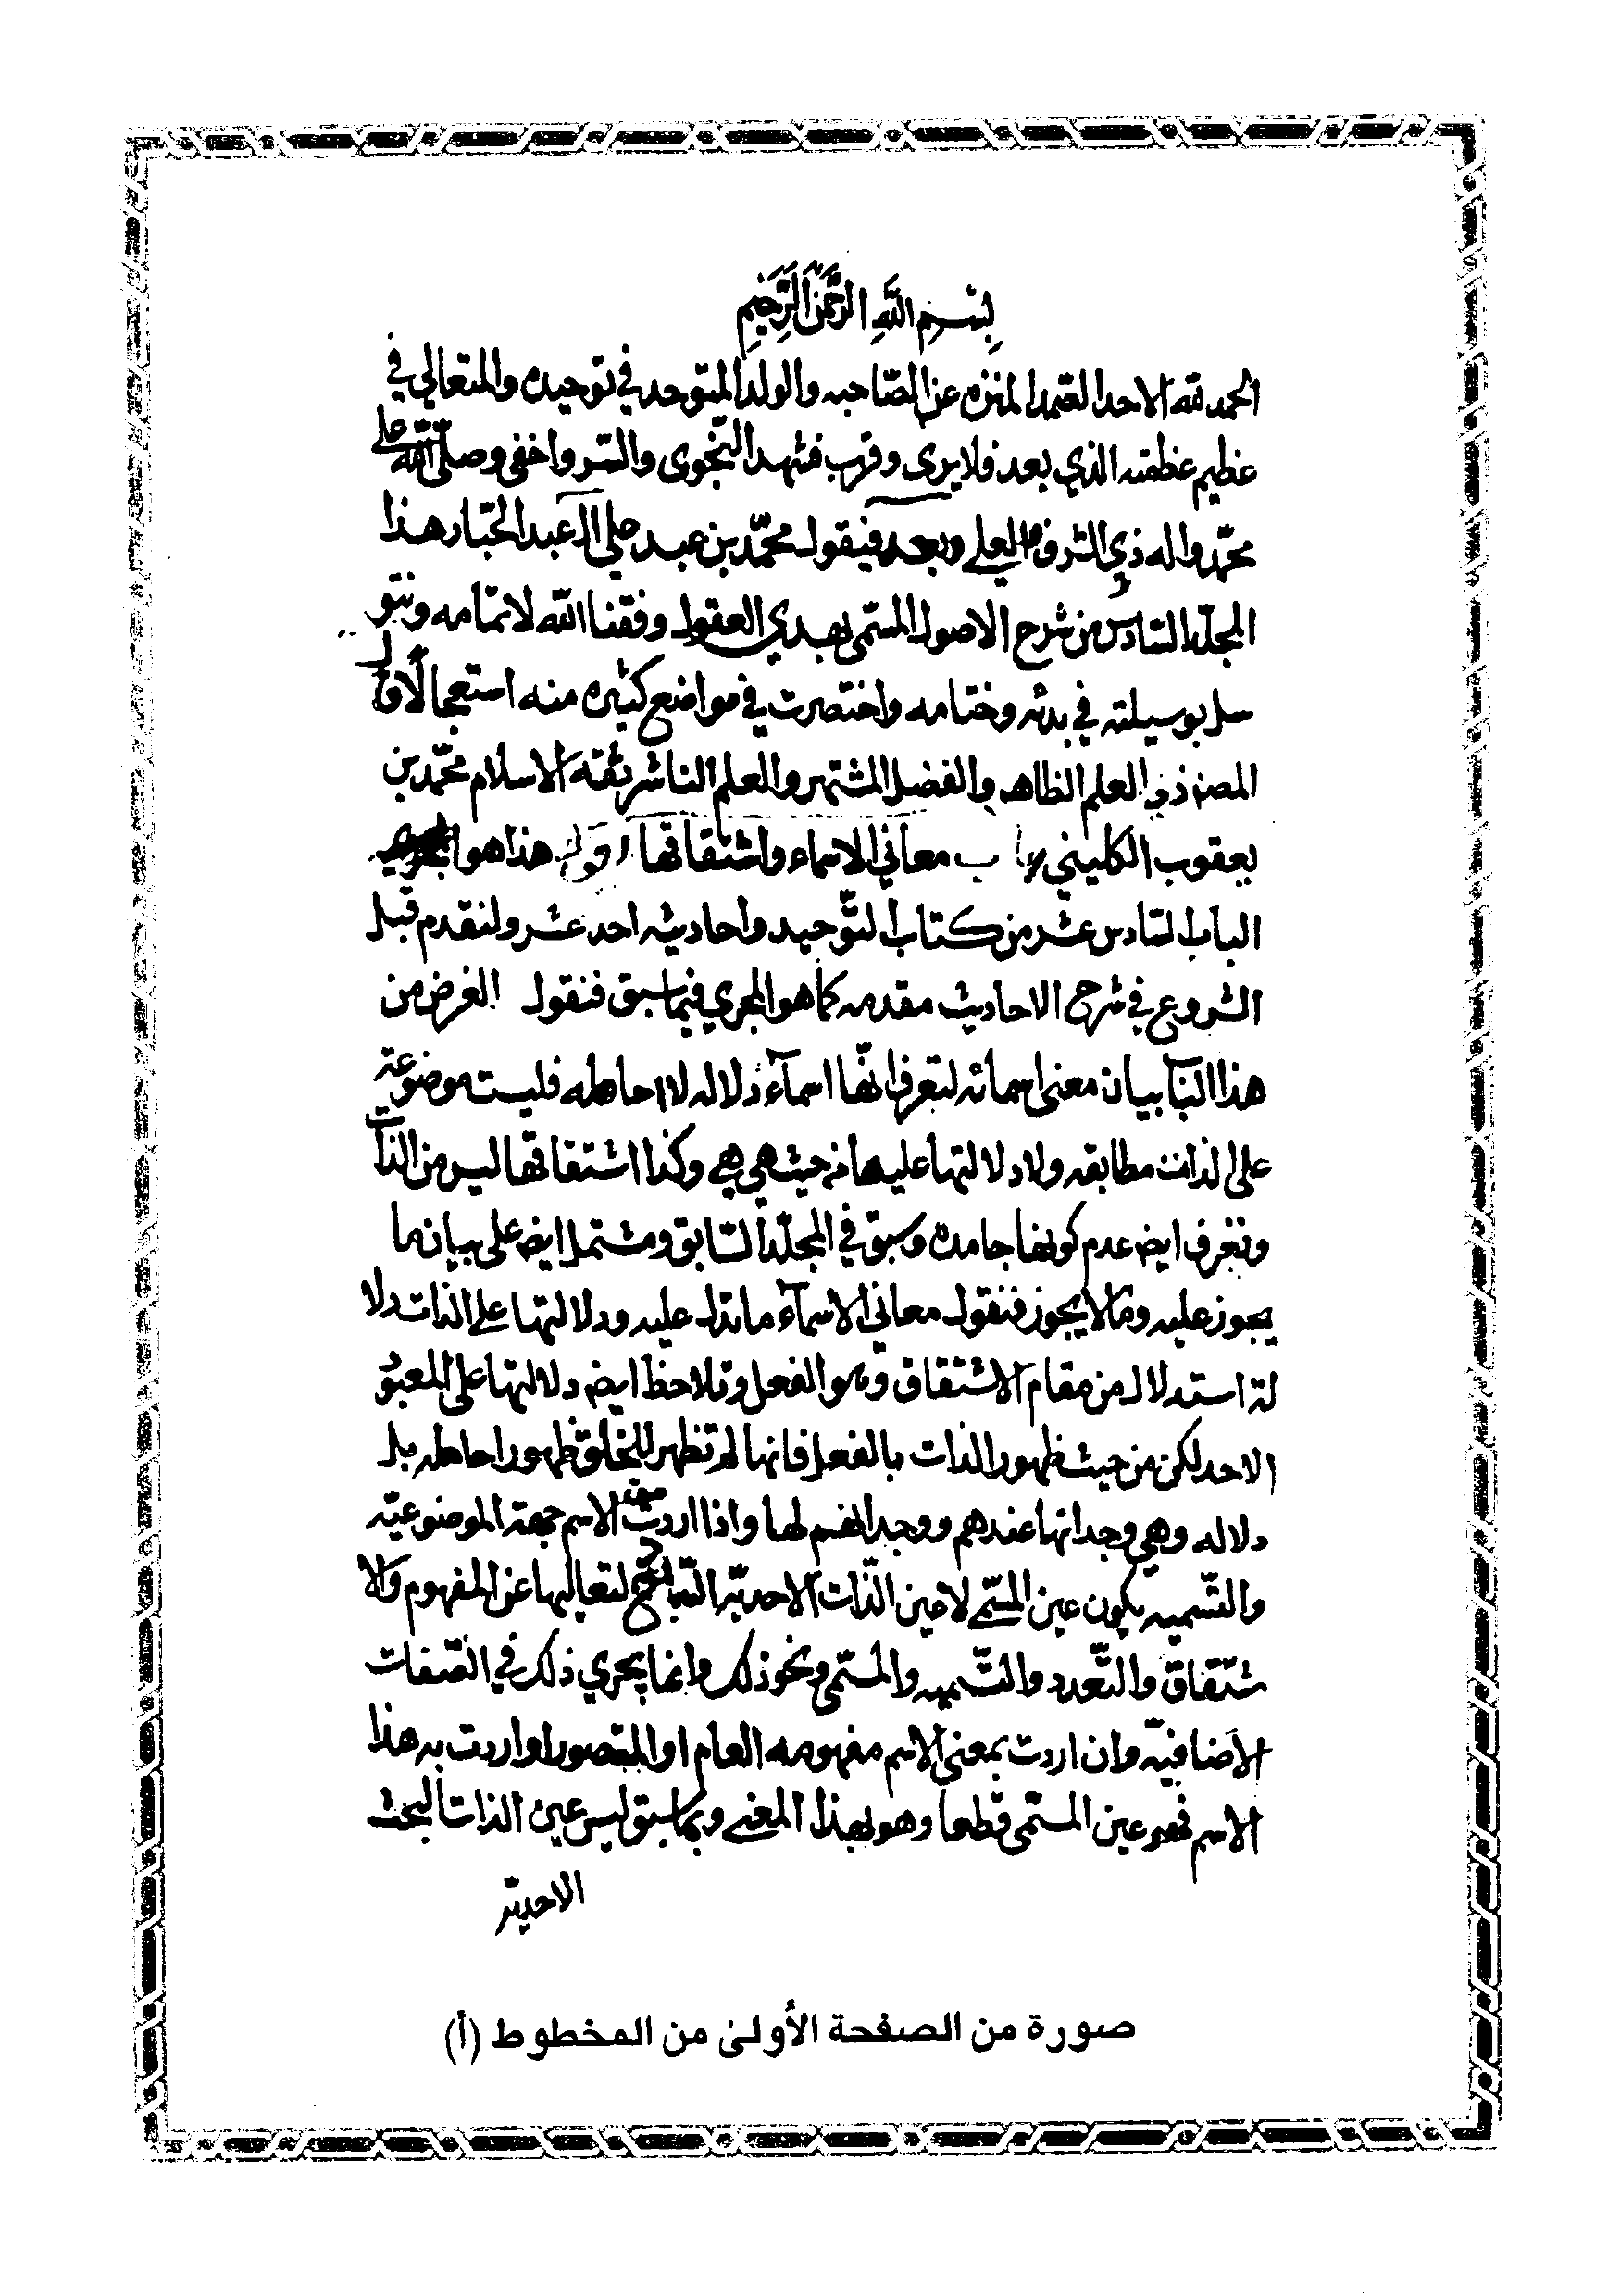 بِسْمِ اللَّهِ الرَّحْمَنِ الرَّحِيمِ
الحمد لله الاحد الصمد المنزه عن الصّاحبه والولد المتوحد في توحيده والمتعالي في
عظيم عظمته الذي بعد فلا يرى وقرب فشهد النّجوى والسّر واخفى وصلّى الله على
محمّد واله ذوي الشرف والعلى وبعد فيقول محمّد بن عبد علي آل عبد الجبّار هذا
المجلّد السّادس من شرح الاصول المسمّى بهدي العقول وفقنا الله لاتمامه ونتو
سل بوسيلته في بدئه وختامه واختصرت في مواضع كثيره منه استعجالًا قال
المصنف ذي العلم الظاهر والفضل المشتهر والعلم الناشر ثقة الاسلام محمّد بن
يعقوب الكليني باب معاني الاسماء واشتقاقها اقول هذا هو
الباب السّادس عشر من كتاب التّوحيد واحاديثه احد عشر ولنقدم قبل
الشروع في شرح الاحاديث مقدمه كما هو المجري فيما سبق فنقول الغرض من
هذا الباب بيان معنى اسمائه لتعرف انّها اسمآء دلاله لا احاطه فليست موضوعة
على الذات مطابقه ولا دلالتها عليها من حيث هي هي وكذا اشتقاقها ليس من الذات
وتعرف ايض عدم كونها جامده وسبق في المجلّد السّابق ومشتمل ايض على بيان ما
يجوز عليه وما لا يجوز فنقول معاني الاسمآء ما تدل عليه ودلالتها على الذات دلا
لة استدلال من مقام الاشتقاق وهو الفعل وتلاحظ ايض دلالتها على المعبود
الاحد لكن من حيث ظهور الذات بالفعل فانها لم تظهر للخلق ظهور احاطه بل
دلاله وهي وجدانها عندهم ووجد انفسهم لها واذا اردت من الاسم جهة الموضوعيّه
والتّسميه يكون عين المسمّى لا عين الذّات الاحديّه التي لتعاليها عن المفهوم والا
شتقاق والتّعدد والتّسميه والمسمّى ونحو ذلك وانما يجري ذلك في الصّفات
الاضافيّه وان اردت بمعنى الاسم مفهومه العام او المتصور او اردت به هذا
الاسم فهو عين المسمّى قطعا وهو بهذا المعنى وبما سبق ليس عين الذات البحث
الاحديّه
صورة من الصفحة الأولى من المخطوط (أ)